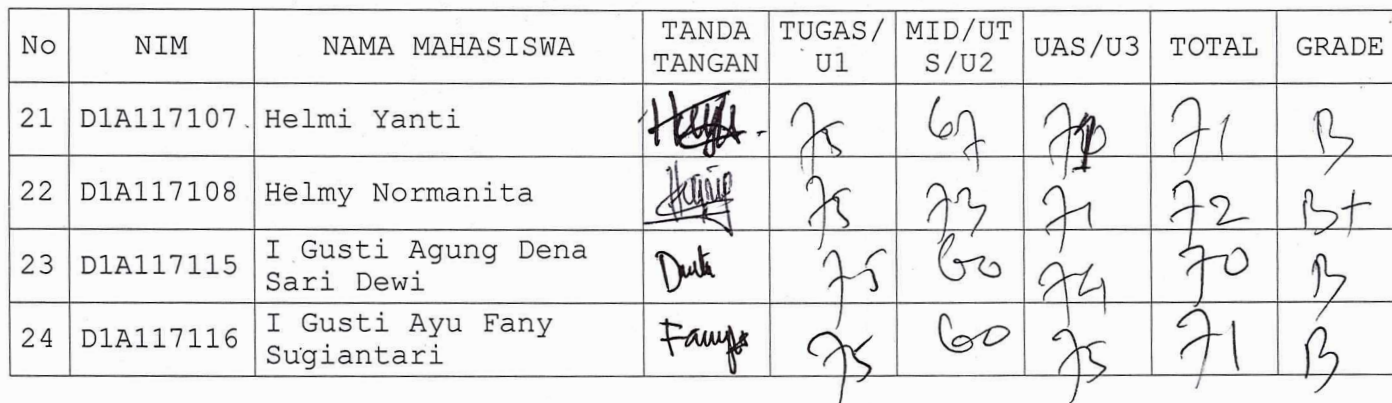 No NIM NAMA MAHASISWA TANDA TANGAN TUGAS/ U1 MID/UT S/U2 UAS/U3 TOTAL GRADE
21 D1A117107 Helmi Yanti 75 67 71 B
22 D1A117108 Helmy Normanita 75 73 71 72 B+
23 D1A117115 I Gusti Agung Dena Sari Dewi 75 60 74 70 B
24 D1A117116 I Gusti Ayu Fany Sugiantari 75 60 75 71 B